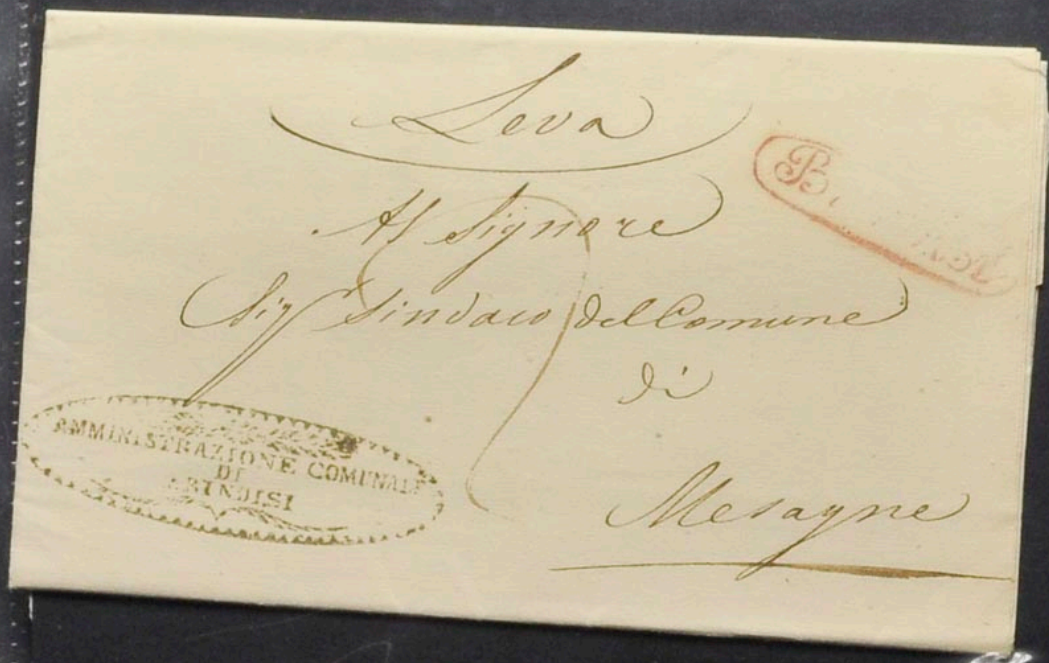 Leva
Al Signore
Sig.r Sindaco del Comune
di
Mesagne
AMMINISTRAZIONE COMUNALE
DI
BRINDISI